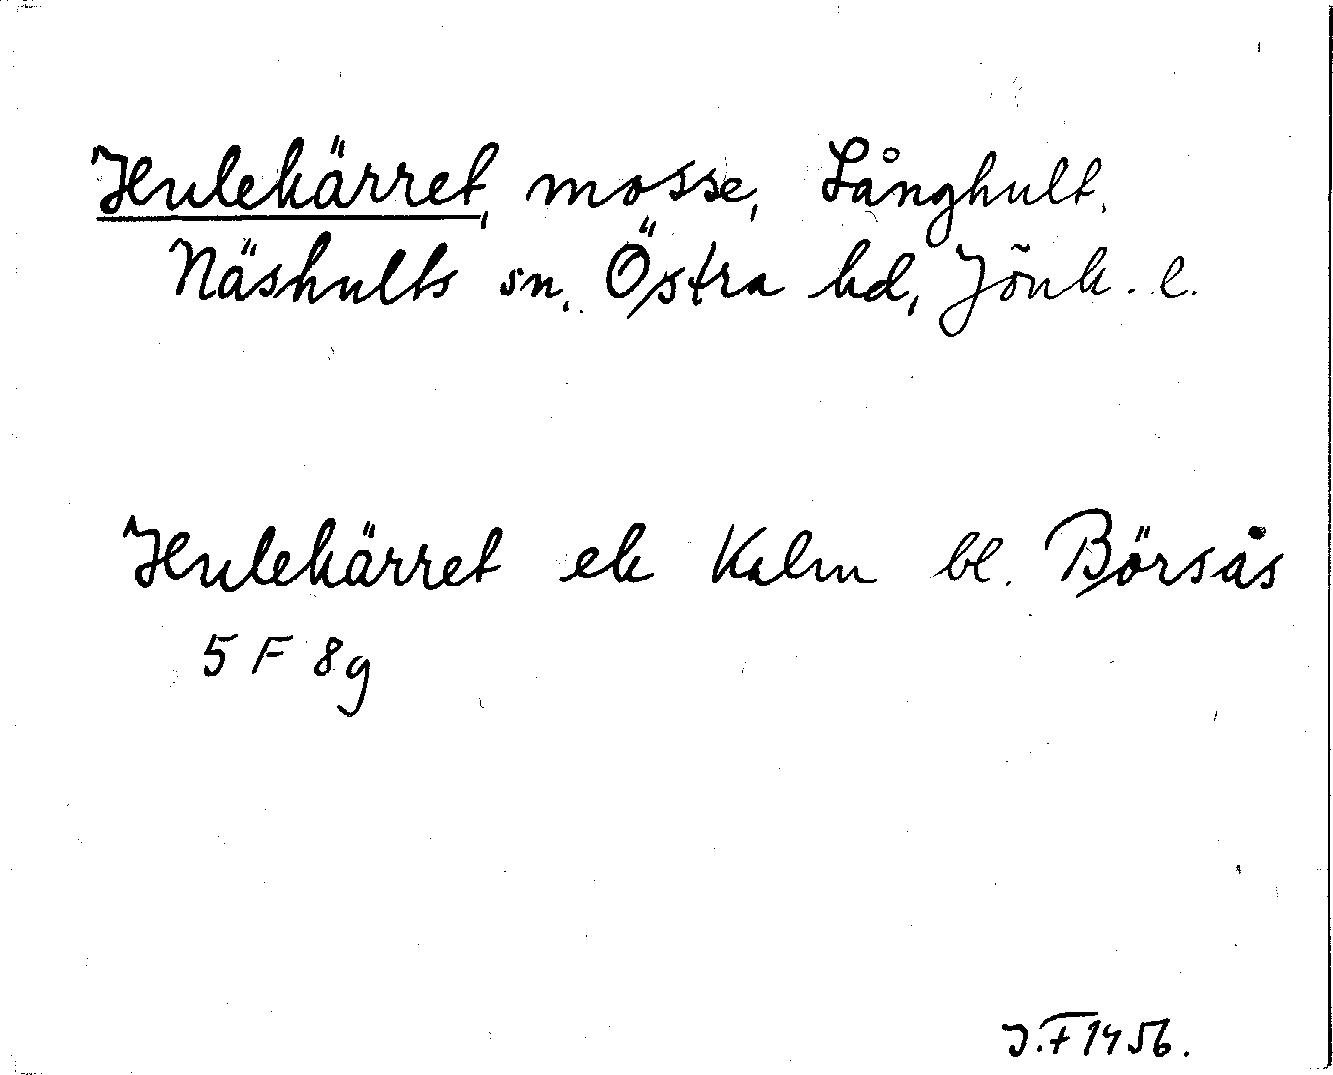 Hulekärret, mosse, Långhult,
Näshults sn, Östra hd, Jönk. l.
Hulekärret ek Kalm bl. Börsås
5 F 8g
J.F 1956.